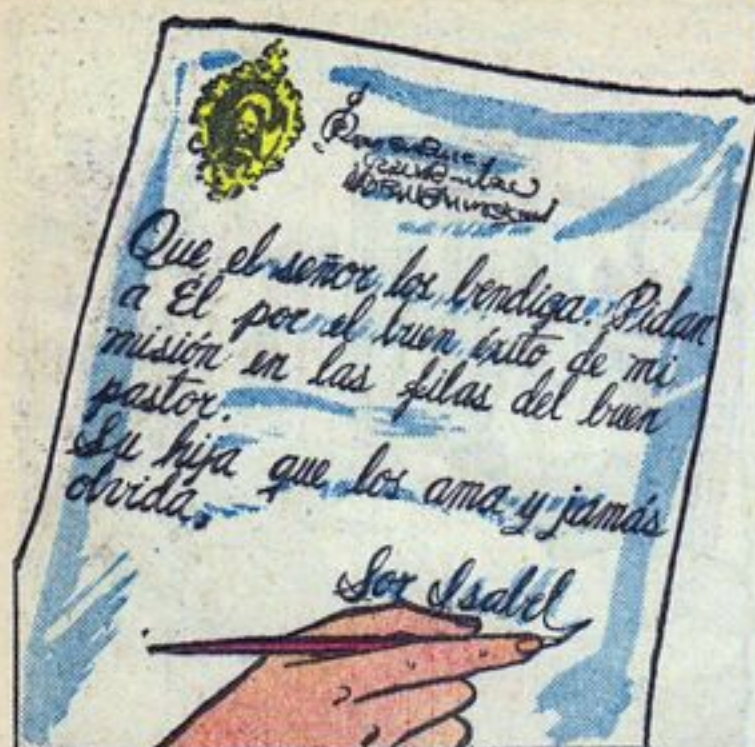 Que el señor los bendiga. Pidan
a Él por el buen éxito de mi
misión en las filas del buen
pastor.
Su hija que los ama y jamás
olvida,
Sor Isabel